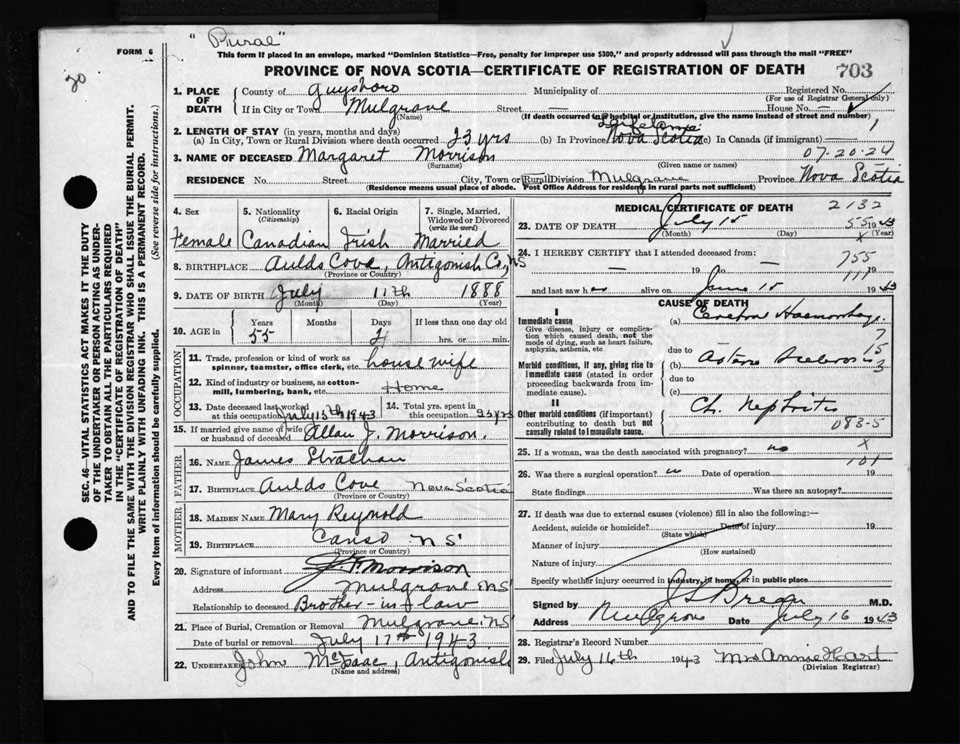 "Rural"
FORM 6
This form if placed in an envelope, marked "Dominion Statistics—Free, penalty for improper use $300," and properly addressed will pass through the mail "FREE"
20
PROVINCE OF NOVA SCOTIA—CERTIFICATE OF REGISTRATION OF DEATH 703
SEC. 46—VITAL STATISTICS ACT MAKES IT THE DUTY
OF THE UNDERTAKER OR PERSON ACTING AS UNDER-
TAKER TO OBTAIN ALL THE PARTICULARS REQUIRED
IN THE "CERTIFICATE OF REGISTRATION OF DEATH"
AND TO FILE THE SAME WITH THE DIVISION REGISTRAR WHO SHALL ISSUE THE BURIAL PERMIT.
WRITE PLAINLY WITH UNFADING INK. THIS IS A PERMANENT RECORD.
Every item of information should be carefully supplied. (See reverse side for instructions.)
1. PLACE OF DEATH
County of Guysboro Municipality of Registered No.
(For use of Registrar General only)
If in City or Town Mulgrave Street — House No. —
(Name) (If death occurred in a hospital or institution, give the name instead of street and number)
2. LENGTH OF STAY (in years, months and days) Lifetime
(a) In City, Town or Rural Division where death occurred 23 yrs (b) In Province Nova Scotia (c) In Canada (if immigrant)
3. NAME OF DECEASED Margaret Morrison 07-20-24
(Surname) (Given name or names)
RESIDENCE No. Street City, Town or Rural Division Mulgrave Province Nova Scotia
(Residence means usual place of abode. Post Office Address for residents in rural parts not sufficient)
4. Sex 5. Nationality (Citizenship) 6. Racial Origin 7. Single, Married, Widowed or Divorced (write the word)
Female Canadian Irish Married
8. BIRTHPLACE Aulds Cove, Antigonish Co., NS
(Province or Country)
9. DATE OF BIRTH July 11th 1888
(Month) (Day) (Year)
10. AGE in Years Months Days If less than one day old
55 hrs. or min.
OCCUPATION
11. Trade, profession or kind of work as spinner, teamster, office clerk, etc. housewife
12. Kind of industry or business, as cotton-mill, lumbering, bank, etc. Home
13. Date deceased last worked at this occupation July 15th 1943 14. Total yrs. spent in this occupation
15. If married give name of wife or husband of deceased Allan J. Morrison.
FATHER
16. NAME James Strachan
17. BIRTHPLACE Aulds Cove Nova Scotia
(Province or Country)
MOTHER
18. MAIDEN NAME Mary Reynold
19. BIRTHPLACE Canso NS
(Province or Country)
20. Signature of informant Morrison
Address Mulgrave NS
Relationship to deceased Brother-in-law
21. Place of Burial, Cremation or Removal Mulgrave NS
Date of burial or removal July 17th 1943
22. UNDERTAKER John McIsaac, Antigonish
(Name and address)
MEDICAL CERTIFICATE OF DEATH 2132
23. DATE OF DEATH July 15 55 1943
(Month) (Day) (Year)
X
24. I HEREBY CERTIFY that I attended deceased from: 755
— 19 to — 111 19
and last saw h alive on June 15 1943
CAUSE OF DEATH
I
Immediate cause
Give disease, injury or complication which caused death, not the mode of dying, such as heart failure, asphyxia, asthenia, etc
(a) Cerebral Haemorrhage.
due to
Morbid conditions, if any, giving rise to immediate cause (stated in order proceeding backwards from immediate cause).
(b) Arterio Sclerosis
due to
(c)
II
Other morbid conditions (if important) contributing to death but not causally related to immediate cause.
Ch. Nephritis
083-5
25. If a woman, was the death associated with pregnancy? no X
101
26. Was there a surgical operation? no Date of operation 19
State findings Was there an autopsy?
27. If death was due to external causes (violence) fill in also the following:—
Accident, suicide or homicide? Date of injury 19
(State which)
Manner of injury
(How sustained)
Nature of injury
Specify whether injury occurred in industry, in home, or in public place
Signed by M.D.
Address Mulgrave Date July 16 1943
28. Registrar's Record Number
29. Filed July 16th 1943 Mrs Annie Hart
(Division Registrar)